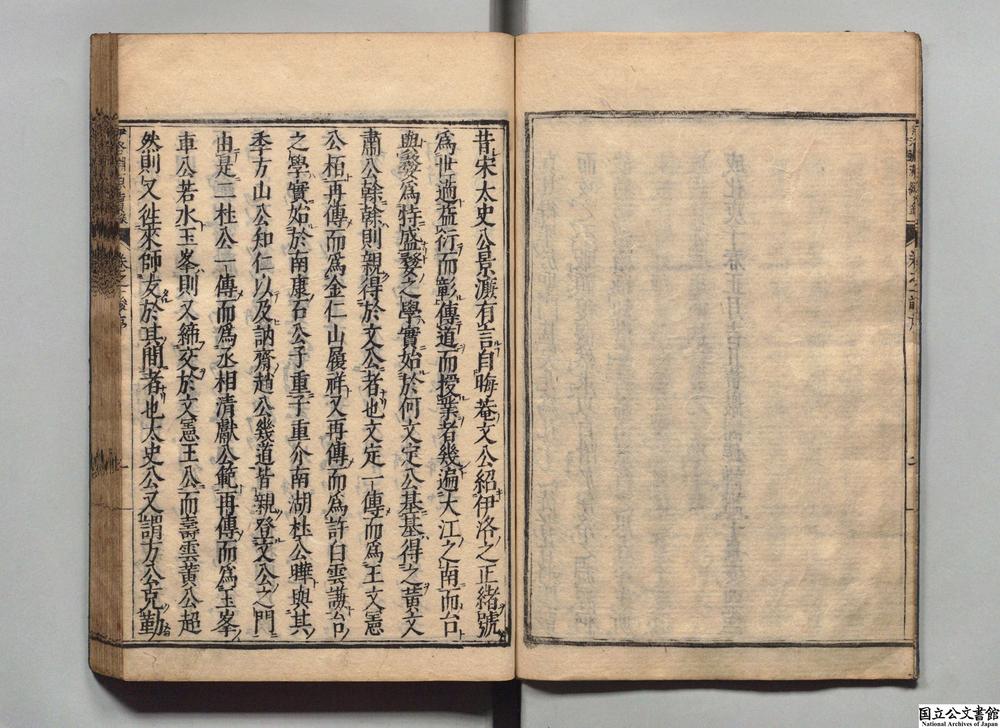 昔宋太史公景濂有言自晦菴文公紹伊洛之正緒號
爲世適益衍而彰傳道而授業者幾遍大江之南而台
與婺爲特盛婺之學實始於何文定公基基得之黃文
肅公榦榦則親得於文公者也文定一傳而爲王文憲
公栢再傳而爲金仁山履祥又再傳而爲許白雲謙台
之學實始於南康石公子重子重介南湖杜公曄與其
季方山公知仁以及訥齋趙公幾道皆親登文公之門
由是二杜公一傳而爲丞相清獻公範再傳而爲玉峯
車公若水玉峯則又締交於文憲王公而壽雲黃公超
然則又徃來師友於其間者也太史公又謂方公克勤
国立公文書館
National Archives of Japan